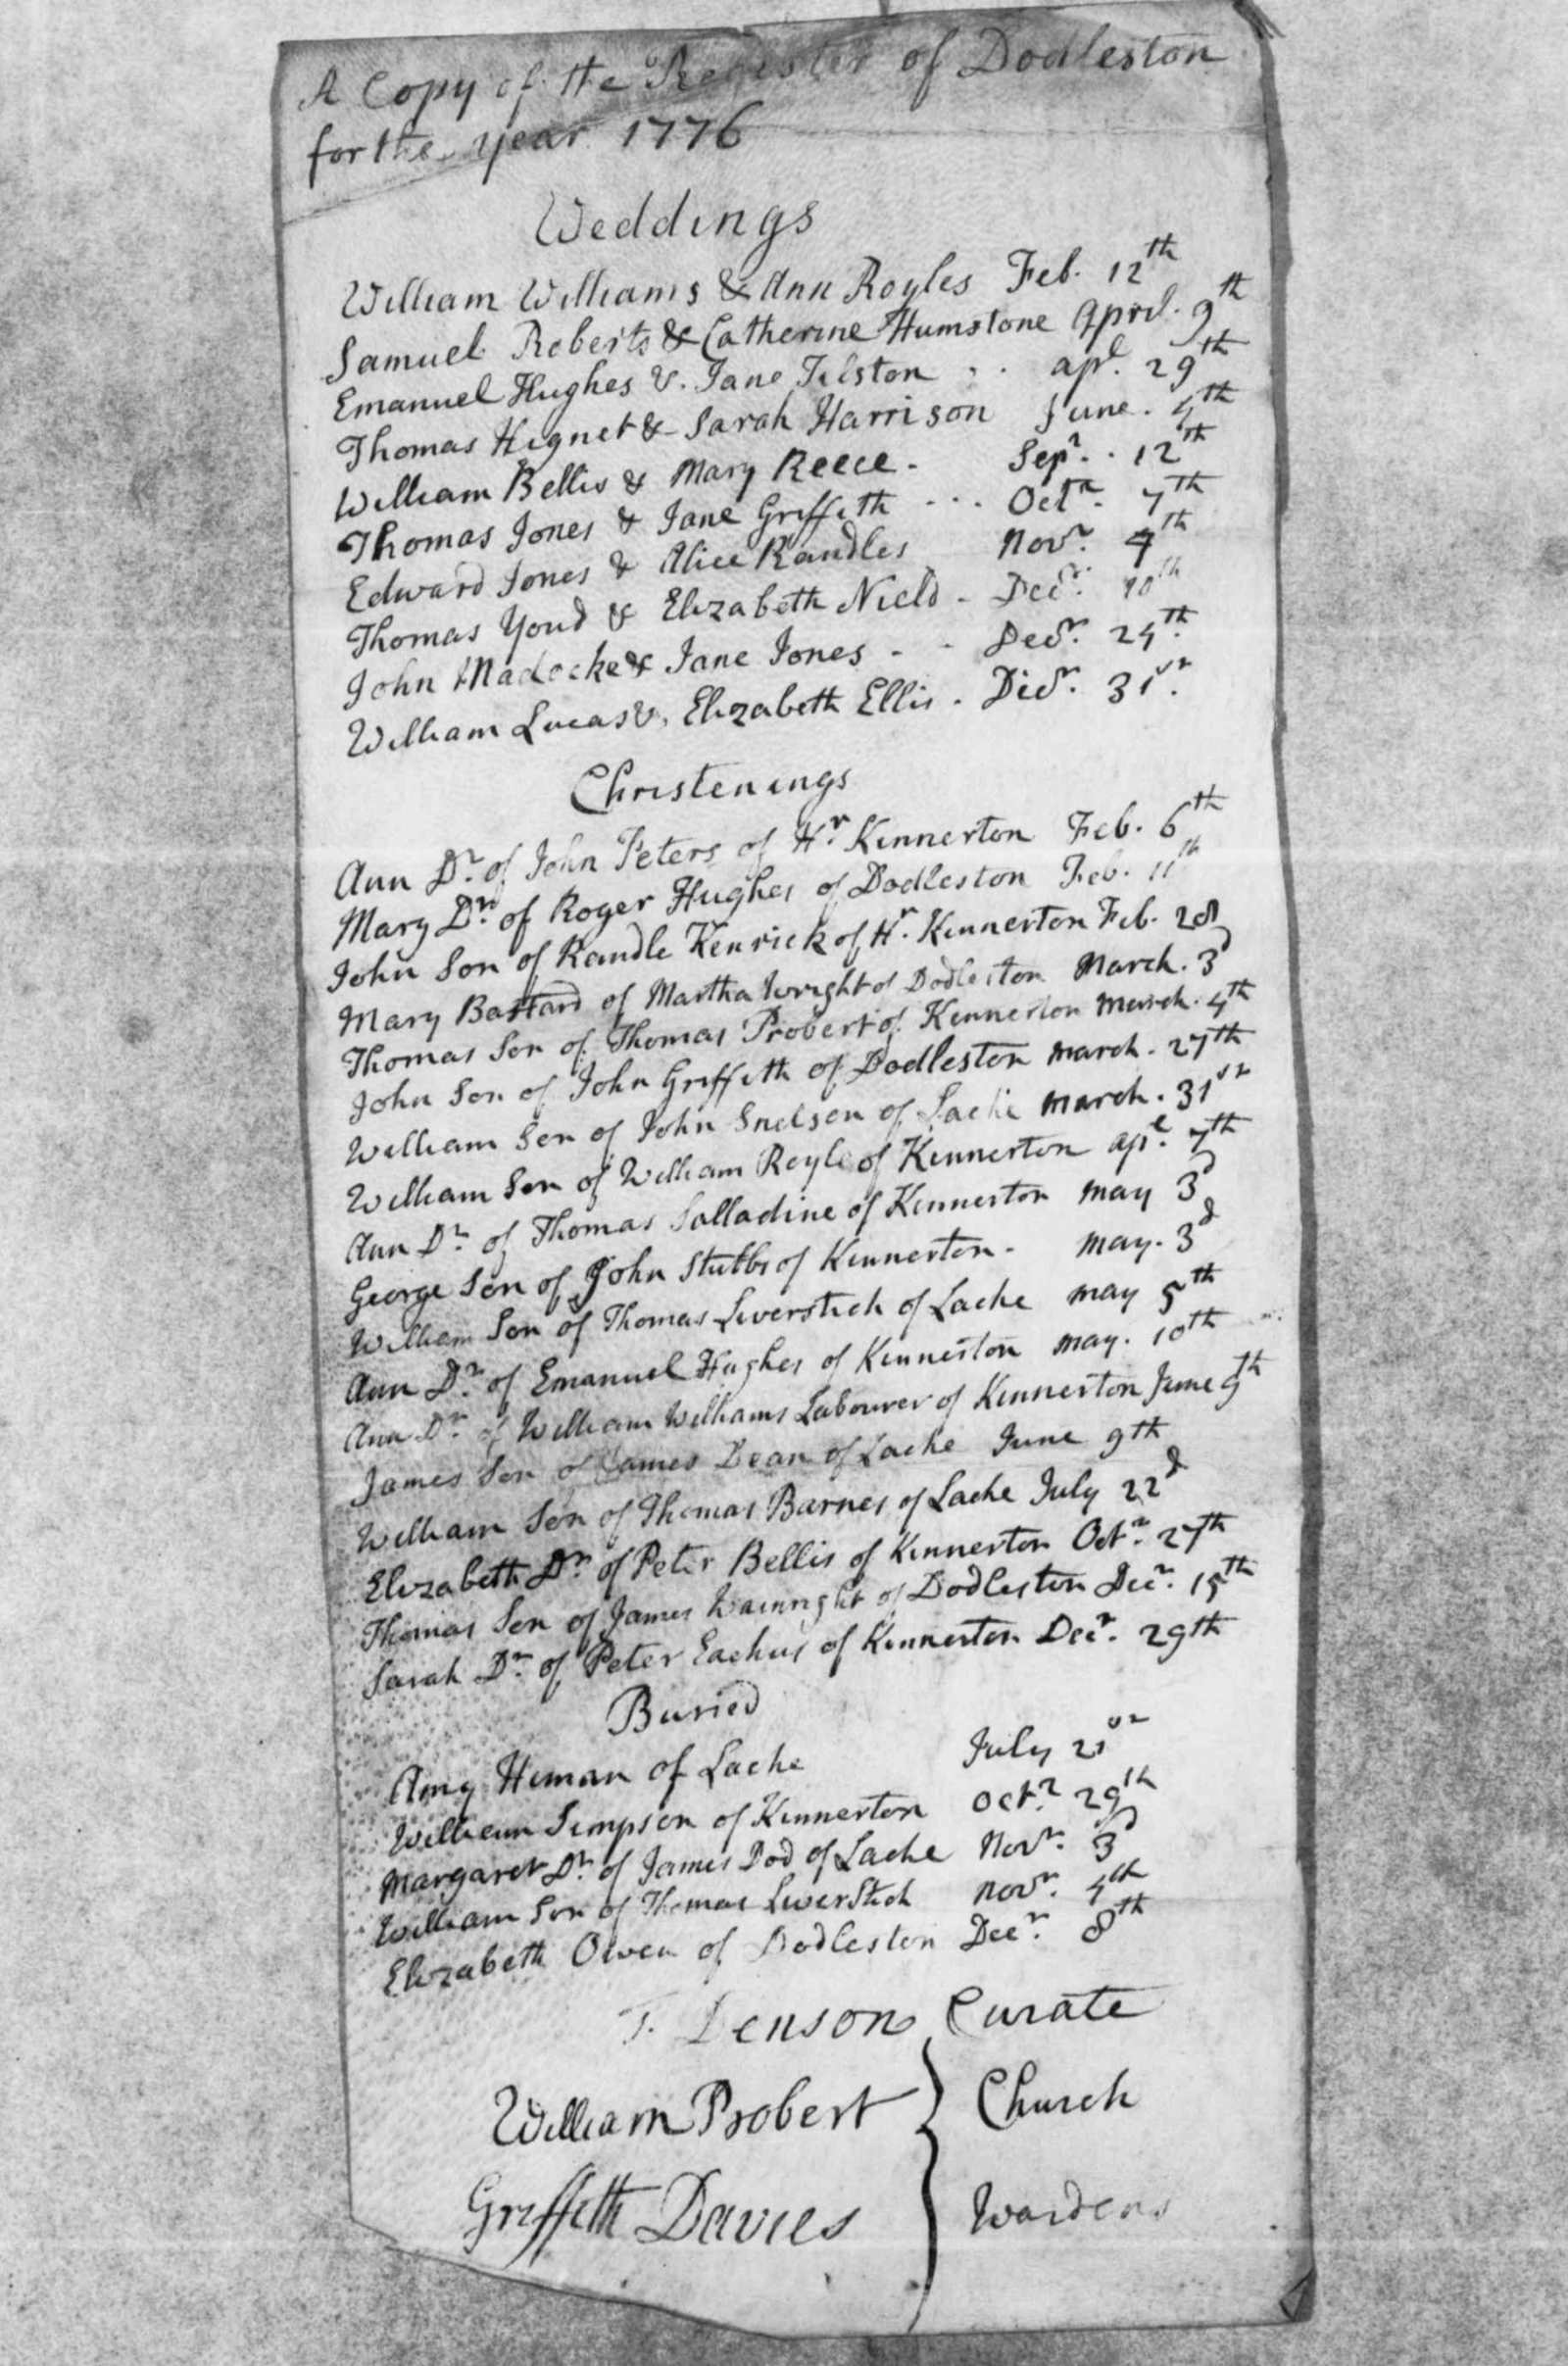 A Copy of the Register of Dodleston
for the year 1776
Weddings
William Williams & Ann Royles Feb. 12th
Samuel Roberts & Catherine Humstone April. 9th
Emanuel Hughes &. Jane Tilston . . apl. 29th
Thomas Hignet & Sarah Harrison June. 4th
William Bellis & Mary Reece. Sepr. . 12th
Thomas Jones & Jane Griffith - - - Octr. 7th
Edward Jones & Alice Randles Novr. 4th
Thomas Youd & Elizabeth Nield - Decr. 10th
John Madocke & Jane Jones - - Decr. 24th.
William Lucas &. Elizabeth Ellis. Decr. 31st.
Christenings
Ann Dr. of John Peters of Hr. Kinnerton Feb. 6th
Mary Dr. of Roger Hughes of Dodleston Feb. 11th
John Son of Randle Kenrick of Hr. Kinnerton Feb. 28
Mary Bastard of Martha Wright of Dodleston March. 3d
Thomas Son of Thomas Probert of Kinnerton March. 4th
John Son of John Griffith of Dodleston March. 27th
William Son of John Snelson of Lache March. 31st
William Son of William Royle of Kinnerton apl. 7th
Ann Dr. of Thomas Salladine of Kinnerton May 3d
George Son of John Stubbs of Kinnerton. May. 3d
William Son of Thomas Liverstich of Lache May 5th
Ann Dr. of Emanuel Hughes of Kinnerton May. 10th
Ann Dr. of William Williams Labourer of Kinnerton June 9th
James Son of James Dean of Lache June 9th
William Son of Thomas Barnes of Lache July 22d
Elizabeth Dr. of Peter Bellis of Kinnerton Octr. 27th
Thomas Son of James Wainright of Dodleston Decr. 15th
Sarah Dr. of Peter Eachus of Kinnerton Decr. 29th
Buried
Amy Hinman of Lache July 21st
William Simpson of Kinnerton Octr. 29th
Margaret Dr. of James Dod of Lache Novr. 3d
William Son of Thomas Liverstich Novr. 4th
Elizabeth Owen of Dodleston Decr. 8th
T. Denson Curate
William Probert } Church
Griffith Davies } Wardens